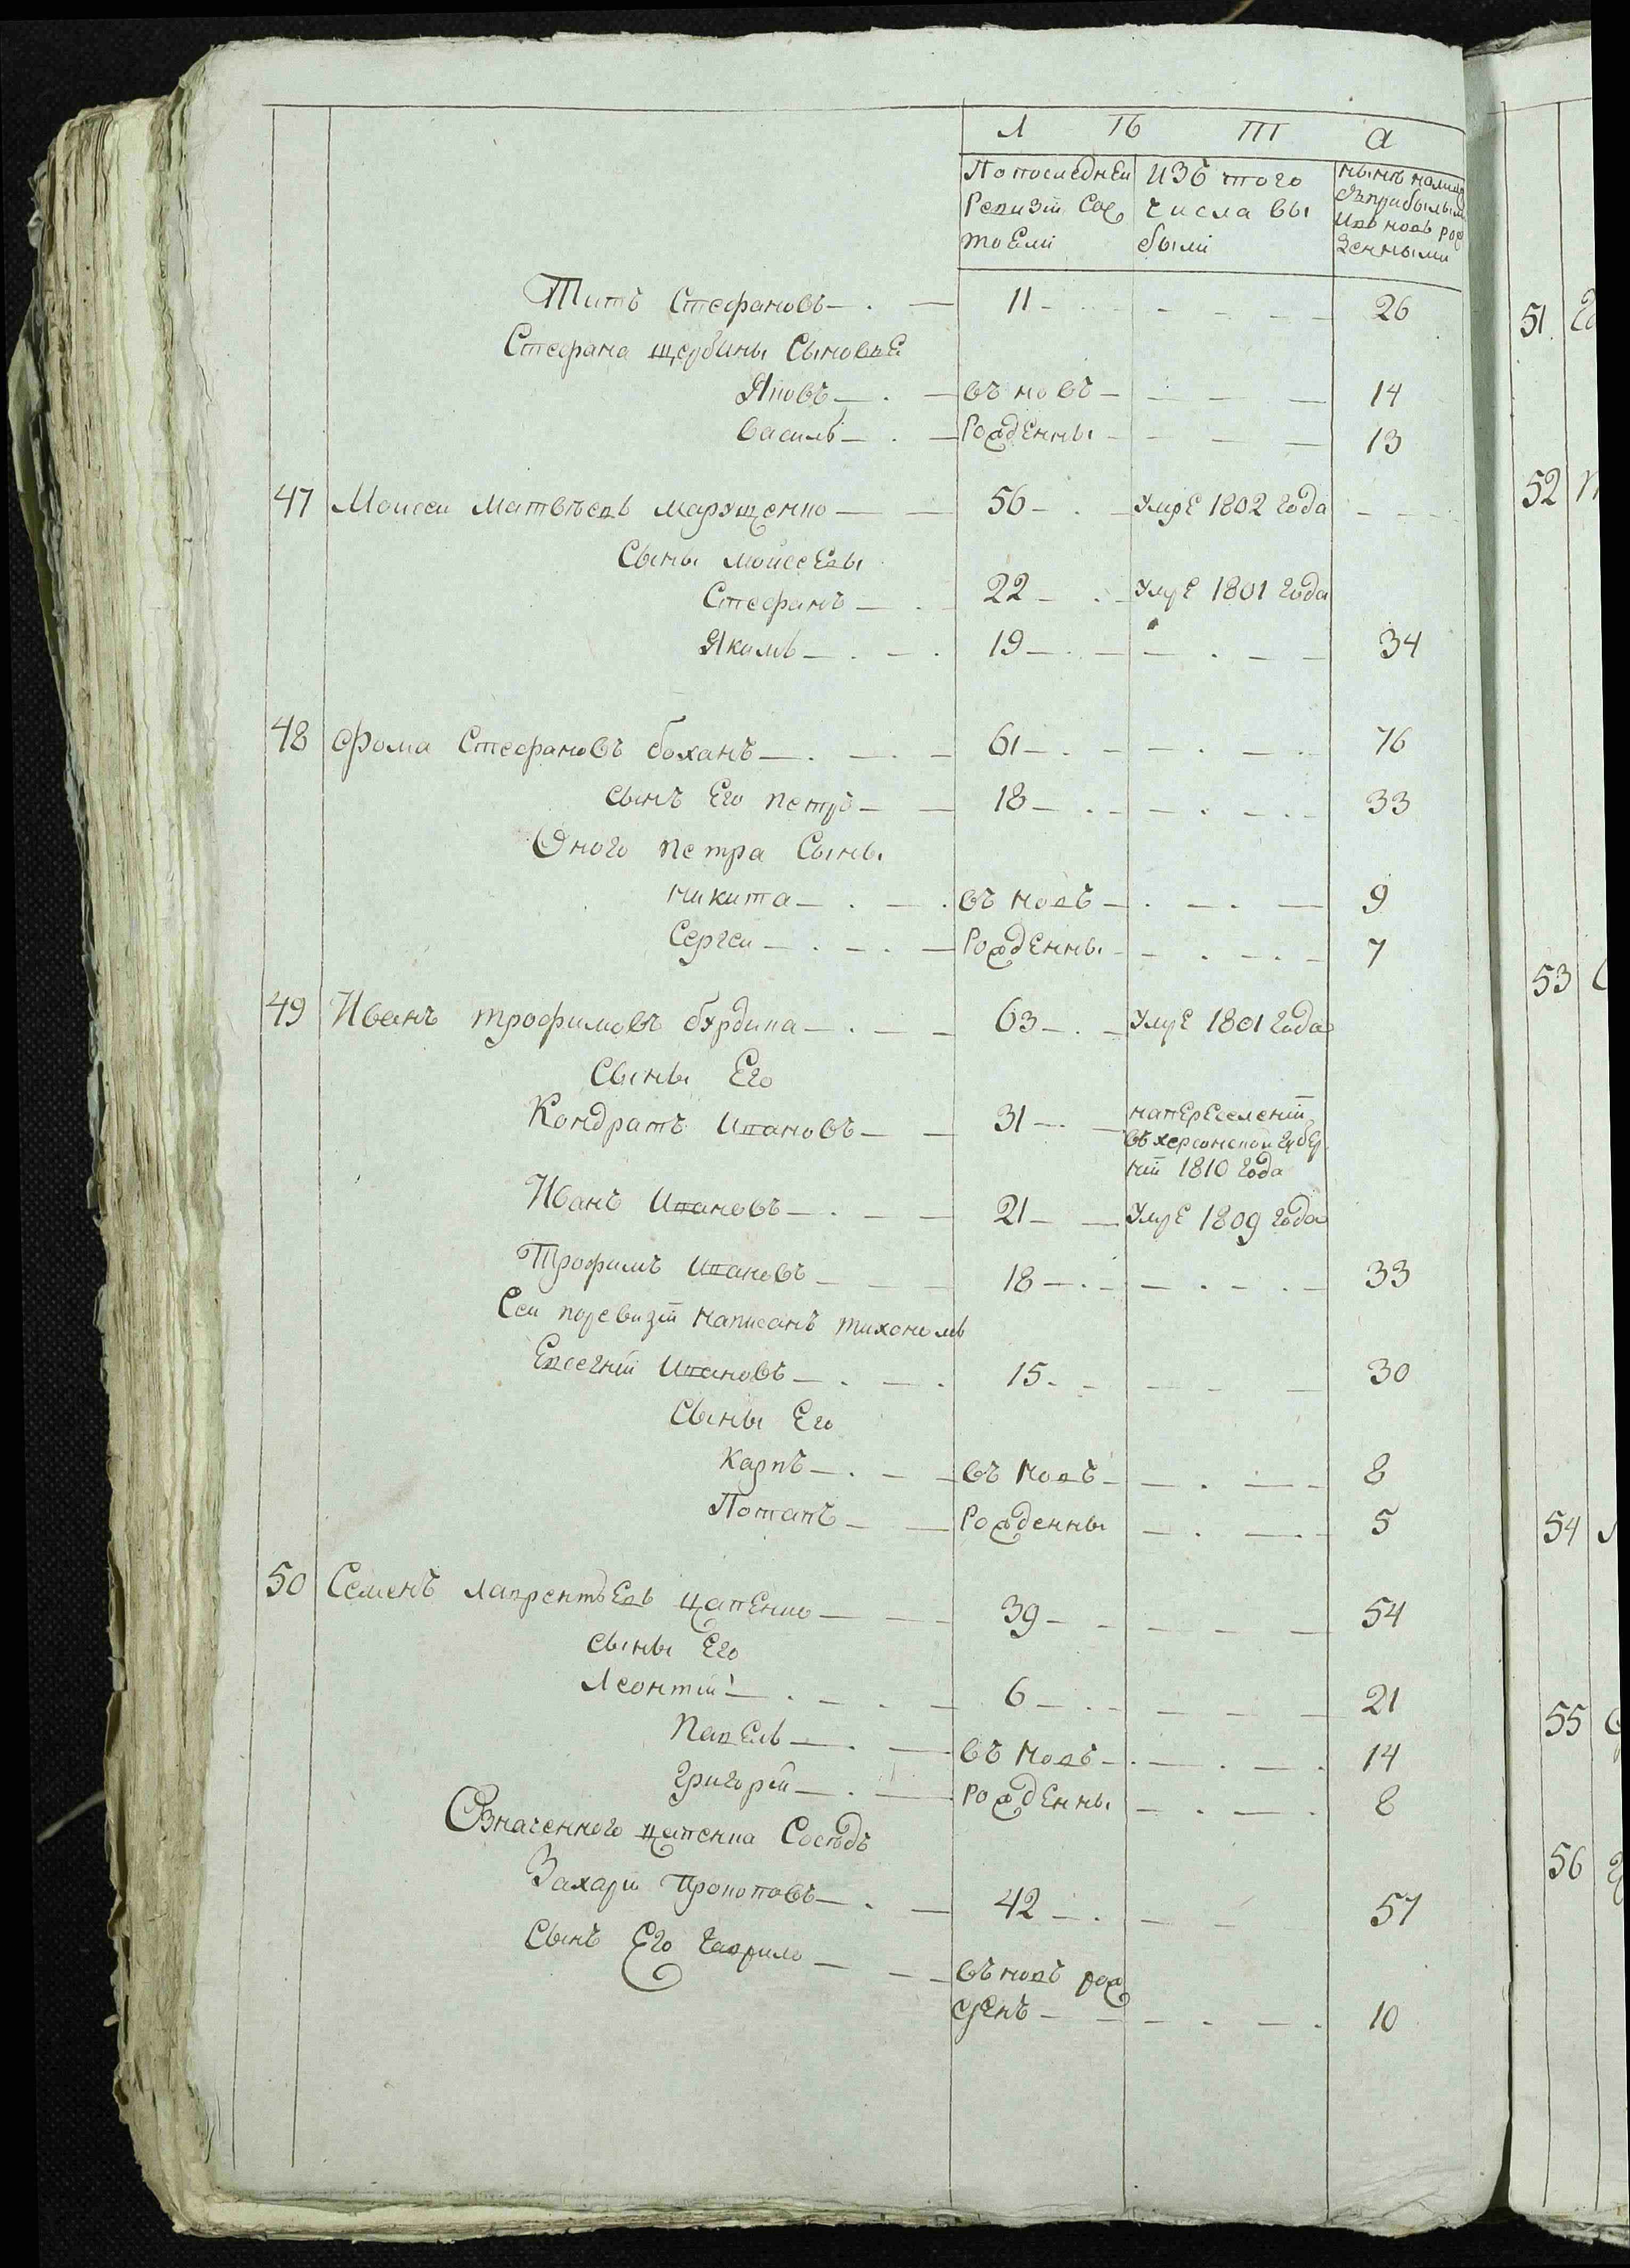 Л ѣ т а
По последней Ревизiи Сос тоели
изъ того числа вы были
нынѣ налицо съ прибылыми и въ новь рож денными
Титъ Стефановъ 11 26
Стефана щербины Сыновье
Яковъ въ новъ 14
василь Рожденны 13
47 Моисеи Матвѣевъ марущенко 56 Умре 1802 года
Сыны моисеевы
Стефанъ 22 Умре 1801 года
Якимъ 19 34
48 Фома Стефановъ боханъ 61 76
сынъ Его петръ 18 33
Оного петра Сыны
никита въ новъ 9
Сергеи Рожденны 7
49 Иванъ трофимовъ бурдика 63 Умре 1801 года
Сыны Его
Кондратъ Ивановъ 31 на пЕрЕселенiи
въ херсонской губЕр
нiи 1810 года
Иванъ Ивановъ 21 Умре 1809 года
Трофимъ Ивановъ 18 33
Сеи поревизiи написанъ тихономъ
Евсегнiи Ивановъ 15 30
Сыны Его
Карпъ въ новъ 8
Потапъ Рожденны 5
50 Семенъ лаврентьевъ цапЕнко 39 54
сыны Его
Леонтiи 6 21
ПавЕлъ въ новъ 14
григорiи рождЕнны 8
Означенного цапенка Сосѣдъ
Захари Прокоповъ 42 57
Сынъ Его гаврило въ новъ рож
дЕнъ 10
51
52
53
54
55
56